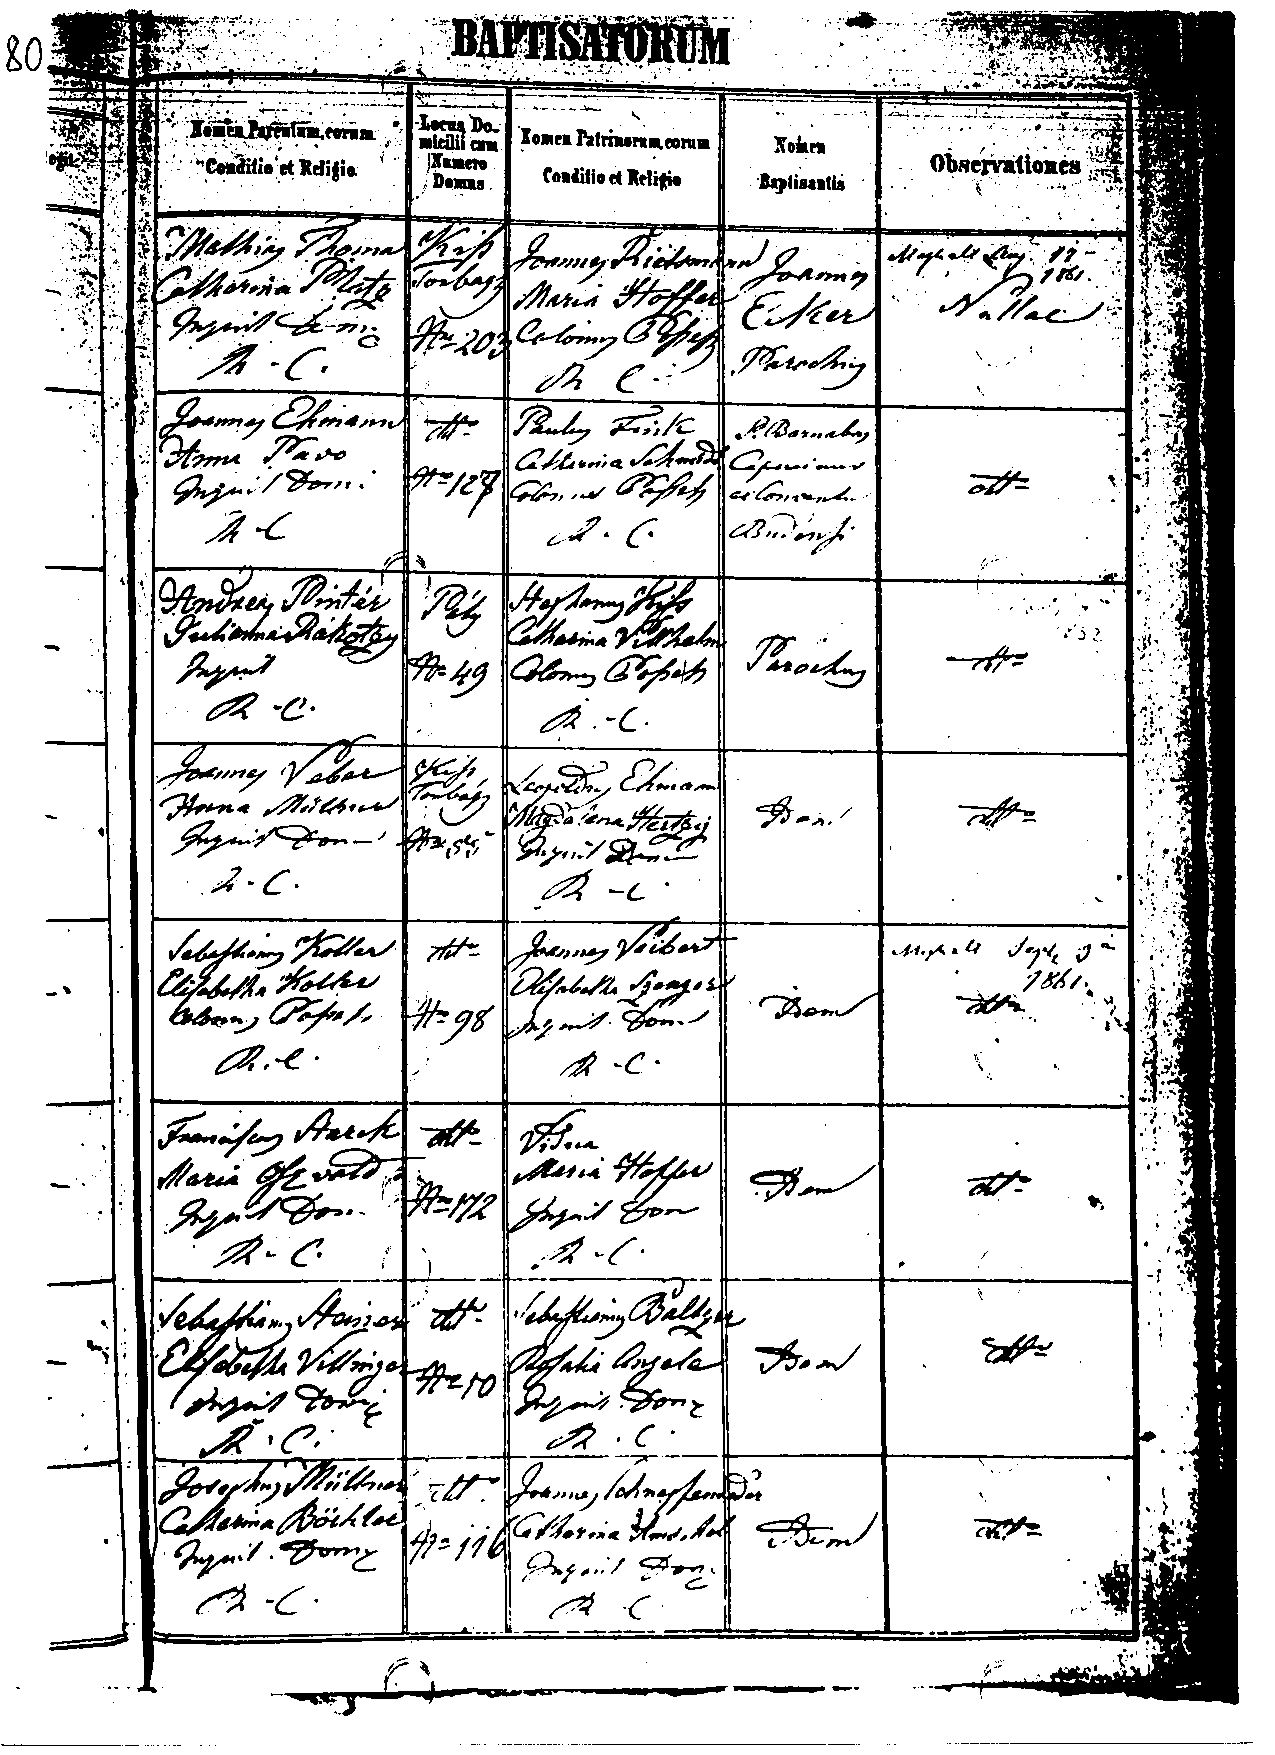 80
BAPTISATORUM
Nomen Parentum, eorum
Conditio et Religio
Locus Do-
micilii cum
Numero
Domus
Nomen Patrinorum, eorum
Conditio et Religio
Nomen
Baptisantis
Observationes
Mathias Thoma
Catherina Metz
Inquil Dom.
R. C.
Kiss
Torbagy
No 203
Joannes
Maria Hoffer
Colonus Possess
R. C.
Joannes
Eiker
Parochus
Meghalt Aug. 17
1861.
Nullae
Joannes Ehmann
Anna
Inquil Domi.
R. C.
dtto
No 127
Paulus Fink
Catherina Schmidt
Colonus Possess
R. C.
P. Barnabas
Capucinus
e Conventu
Budensi
dtto
Andreas Pintér
Julianna Rákotzy
Inquil
R. C.
Páty
No 49
Stephanus Kiss
Catharina Vilhelm
Colonus Possess
R. C.
Parochus
dtto
Joannes Veber
Anna Müllner
Inquil Dom
R. C.
Kiss
Torbagy
No 55
Leopoldus Ehmann
Magdalena Hertzig
Inquil Dom
R. C.
Idem
dtto
Sebastianus Koller
Elisabetha Koller
Colonus Possess.
R. C.
dtto
No 98
Joannes Seibert
Elisabetha
Inquil Dom
R. C.
Idem
Meghalt Sept. 9
1861.
dtto
Franciscus Starck
Maria Oszvald
Inquil Dom.
R. C.
dtto
No 172
Vidua
Maria Hoffer
Inquil Dom
R. C.
Idem
dtto
Sebastianus Steiner
Elisabetha Villinger
Inquil Domi
R. C.
dtto
No 10
Sebastianus Baltzer
Rosalia Angele
Inquil Dom
R. C.
Idem
dtto
Josephus Müllner
Catherina Böchler
Inquil. Dom
R. C.
dtto
No 116
Joannes
Catharina
Inquil Dom
R. C.
Idem
dtto